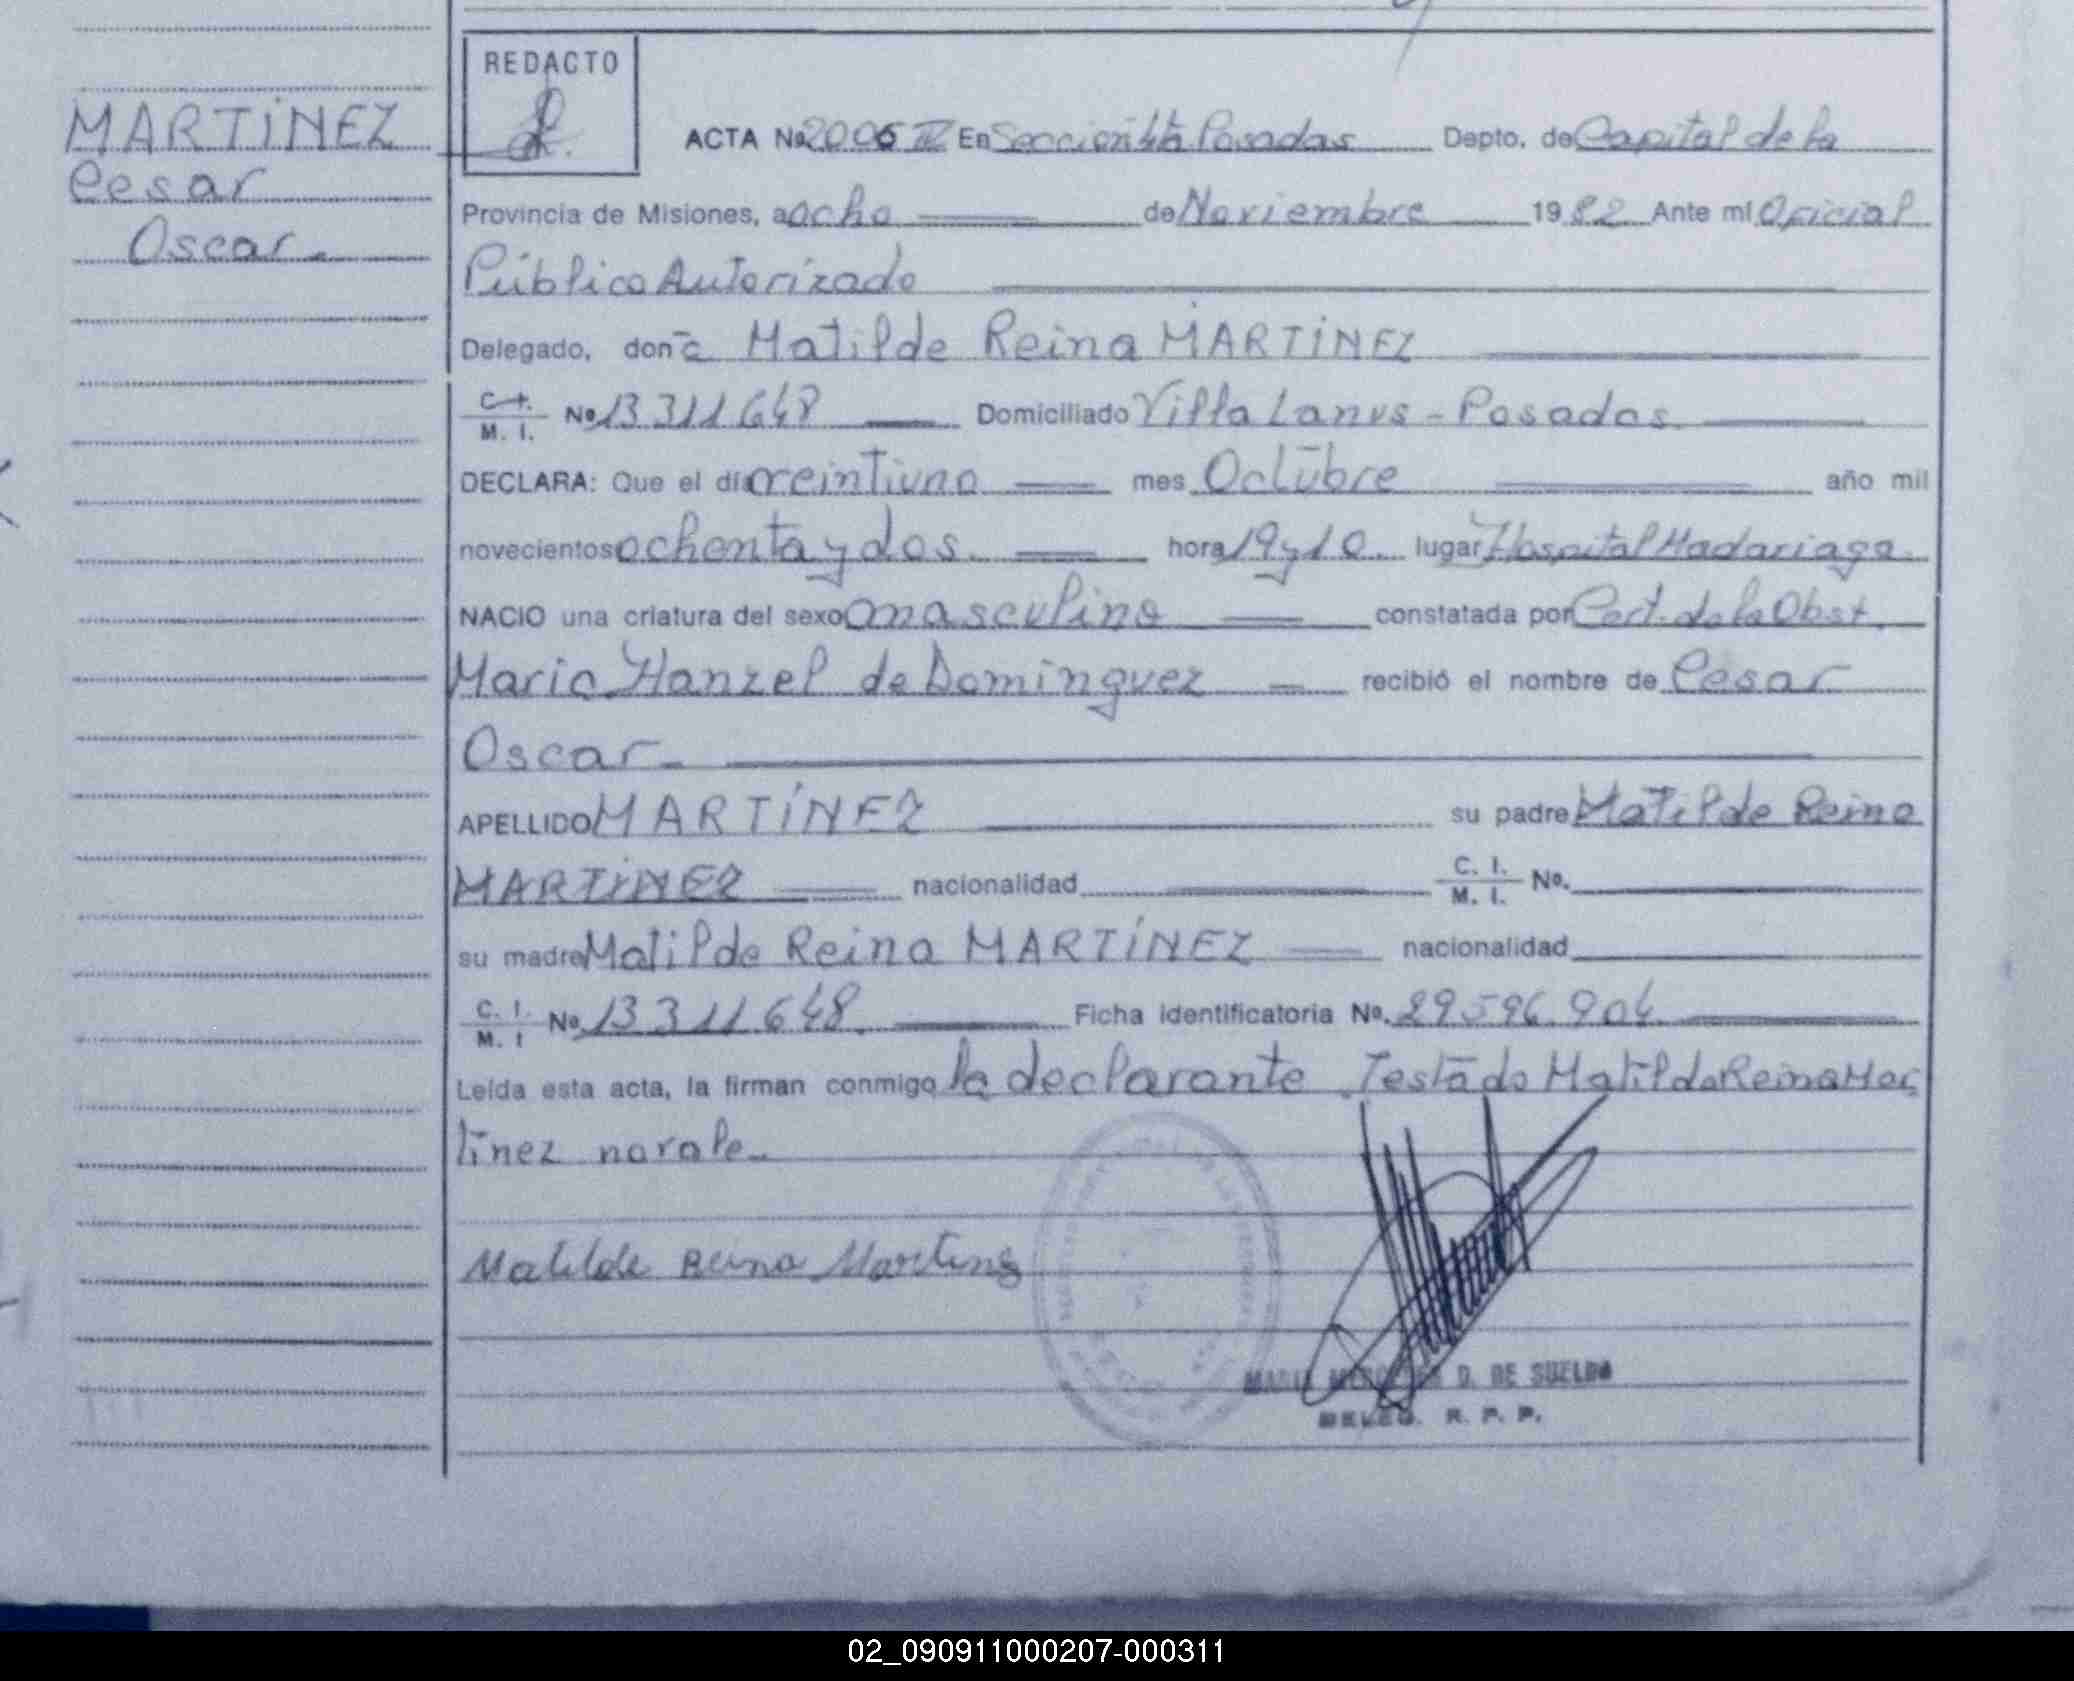 REDACTO
MARTÍNEZ
Cesar
Oscar.
ACTA Nº 2006 IV En Sección 4ta Posadas Depto. de Capital de la
Provincia de Misiones, a ocho de Noviembre 1982 Ante mí Oficial
Público Autorizado
Delegado, doña Matilde Reina MARTÍNEZ
C. I. M. I. Nº 13311648 Domiciliado Villa Lanus - Posadas.
DECLARA: Que el día veintiuno mes Octubre año mil
novecientos ochenta y dos. hora 19 y 10 lugar Hospital Madariaga.
NACIO una criatura del sexo masculino constatada por Cert. de la Obst.
Maria Hanzel de Dominguez recibió el nombre de Cesar
Oscar.
APELLIDO MARTÍNEZ su padre Matilde Reina
MARTÍNEZ nacionalidad C. I. M. I. Nº.
su madre Matilde Reina MARTÍNEZ nacionalidad
C. I. M. I Nº 13311648. Ficha identificatoria Nº. 29596904
Leída esta acta, la firman conmigo la declarante. Testado Matilde Reina Mar
tínez no vale.
Matilde Reina Martines
D. DE SUELDO
DELEG. R. P. P.
02_090911000207-000311